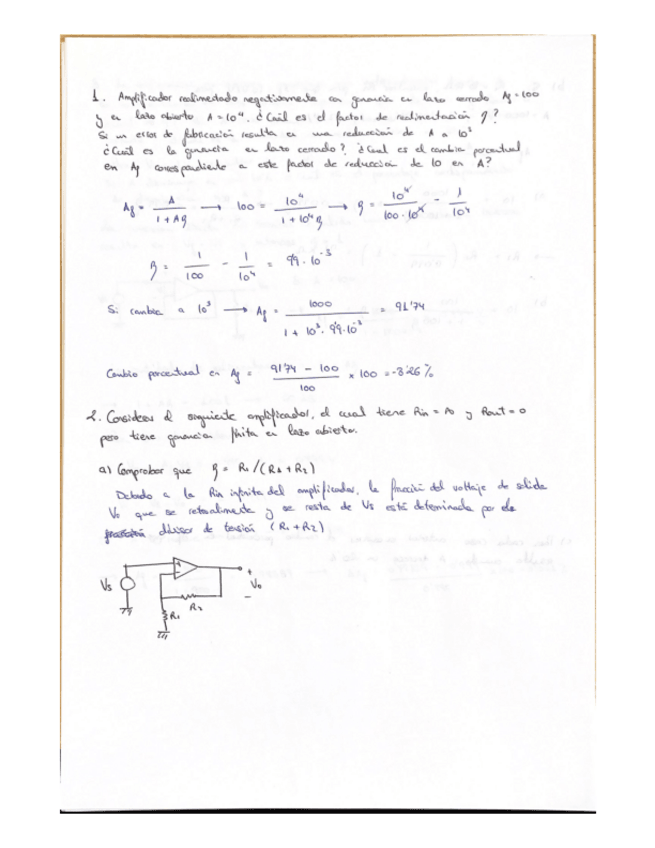 1. Amplificador realimentado negativamente con ganancia en lazo cerrado Af = 100
y en lazo abierto A = 10⁴. ¿Cuál es el factor de realimentación β?
Si un error de fabricación resulta en una reducción de A a 10³
¿Cuál es la ganancia en lazo cerrado?, ¿Cual es el cambio porcentual
en Af correspondiente a este factor de reducción de 10 en A?
Af = A / (1 + Aβ) → 100 = 10⁴ / (1 + 10⁴β) → β = 10⁴ / (100 · 10⁴) - 1 / 10⁴
β = 1/100 - 1/10⁴ = 9'9 · 10⁻³
Si cambia a 10³ → Af = 1000 / (1 + 10³ · 9'9 · 10⁻³) = 91'74
Cambio porcentual en Af = (91'74 - 100) / 100 × 100 = -8'26 %
2. Considerar el siguiente amplificador, el cual tiene Rin = ∞ y Rout = 0
pero tiene ganancia finita en lazo abierto.
a) Comprobar que β = R₁ / (R₁ + R₂)
Debido a la Rin infinita del amplificador, la fracción del voltaje de salida
Vo que se retroalimenta y se resta de Vs está determinada por el
divisor de tensión (R₁ + R₂)
+
-
Vs
+
Vo
-
R₂
R₁